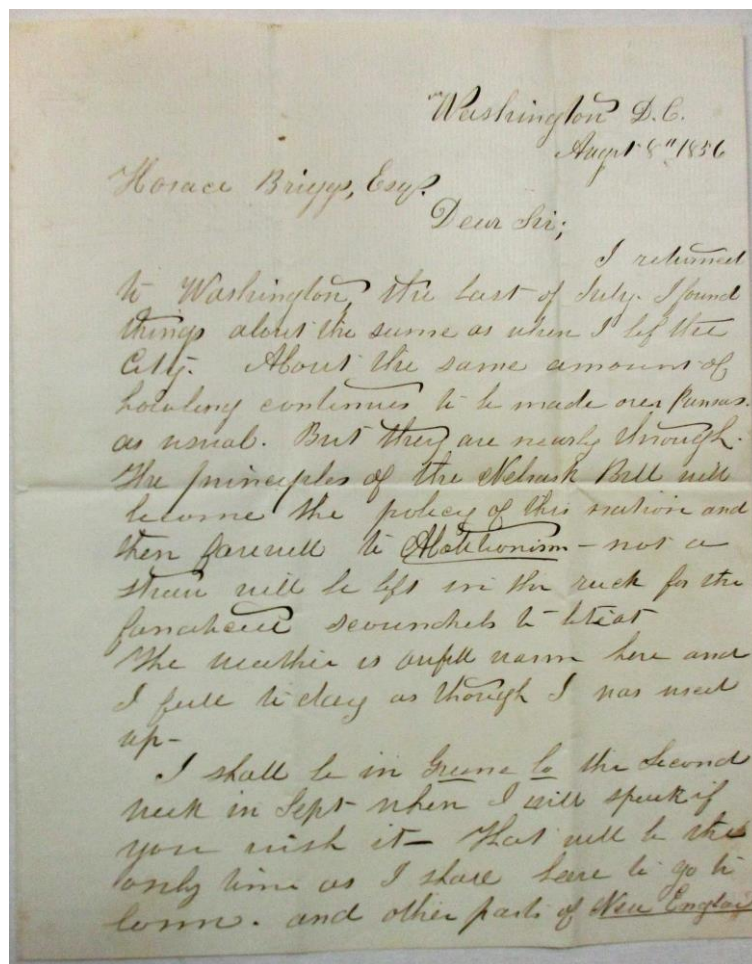 Washington D.C.
Augst 8" 1856
Horace Briggs, Esq.
Dear Sir;
I returned
to Washington, the last of July. I found
things about the same as when I left the
City. About the same amount of
howling continues to be made over Kansas.
as usual. But they are nearly through.
The principles of the Nebrask Bill will
become the policy of this nation and
then farewell to Abolitionism - not a
straw will be left in the rack for the
fanatical scoundrels to
The weather is awfull warm here and
I feell to day as though I was used
up -
I shall be in Greene Co the Second
week in Sept - when I will speak if
you wish it - That will be the
only time as I shall have to go to
Conn. and other parts of New England